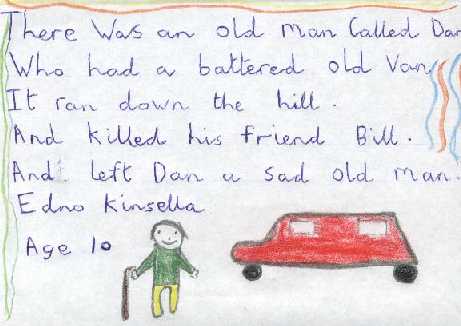 There Was an old man Called Dan
Who had a battered old Van
It ran down the hill.
And killed his friend Bill.
And left Dan a sad old man.
Edno Kinsella
Age 10